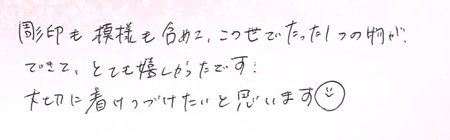 彫印も模様も含めて、この世でたった1つの物が、
できて、とても嬉しかったです!
大切に着けつづけたいと思います